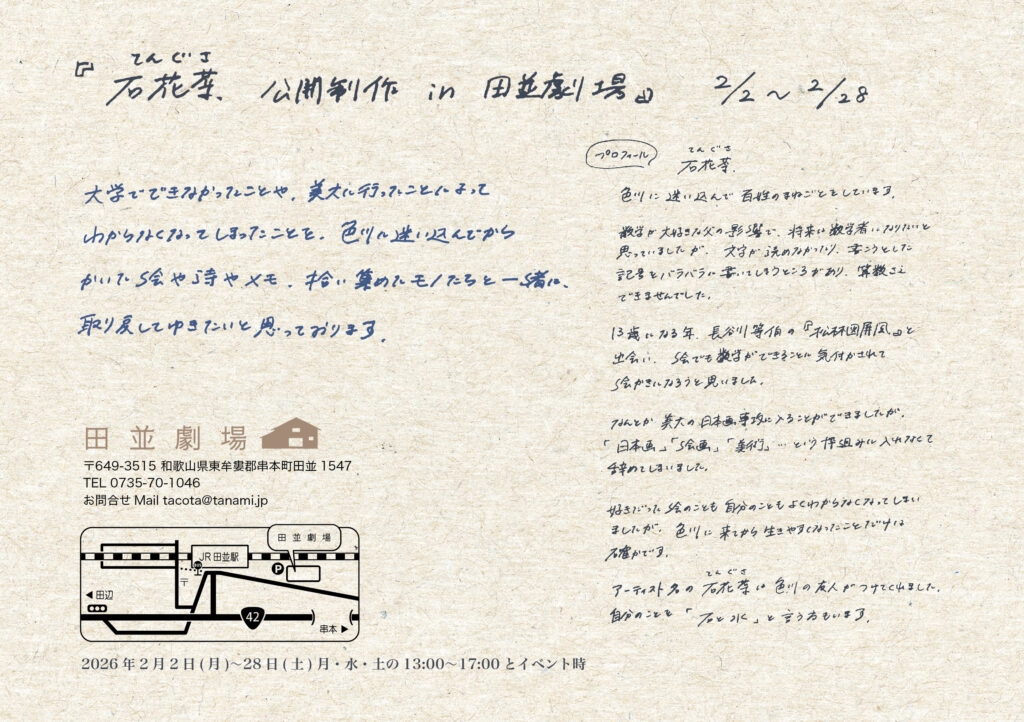 てんぐさ
『石花菜 公開制作 in 田並劇場』 2/2 〜 2/28
大学でできなかったことや、美大に行ったことによって
わからなくなってしまったことを、色川に迷い込んでから
かいた絵や詩やメモ、拾い集めたモノたちと一緒に、
取り戻してゆきたいと思っております。
田並劇場
〒649-3515 和歌山県東牟婁郡串本町田並 1547
TEL 0735-70-1046
お問合せ Mail tacota@tanami.jp
田 並 劇 場
JR 田並駅
P
〒
◀ 田辺
42
串本 ▶
2026 年 2 月 2 日 (月)〜28 日 (土) 月・水・土の 13:00〜17:00 とイベント時
プロフィール
てんぐさ
石花菜
色川に迷い込んで百姓のまねごとをしています。
数学が大好きな父の影響で、将来は数学者になりたいと
思っていましたが、文字が読めなかったり、書こうとした
記号とバラバラに書いてしまうところがあり、算数さえ
できませんでした。
13歳になる年、長谷川等伯の『松林図屏風』と
出会い、絵でも数学ができることに気付かされて
絵かきになろうと思いました。
なんとか美大の日本画専攻に入ることができましたが、
「日本画」「絵画」「美術」…という枠組みに入れなくて
辞めてしまいました。
好きだった絵のことも自分のこともよくわからなくなってしまい
ましたが、色川に来てから生きやすくなったことだけは
確かです。
てんぐさ
アーティスト名の石花菜は色川の友人がつけてくれました。
自分のことを「石と水」と言う方もいます。